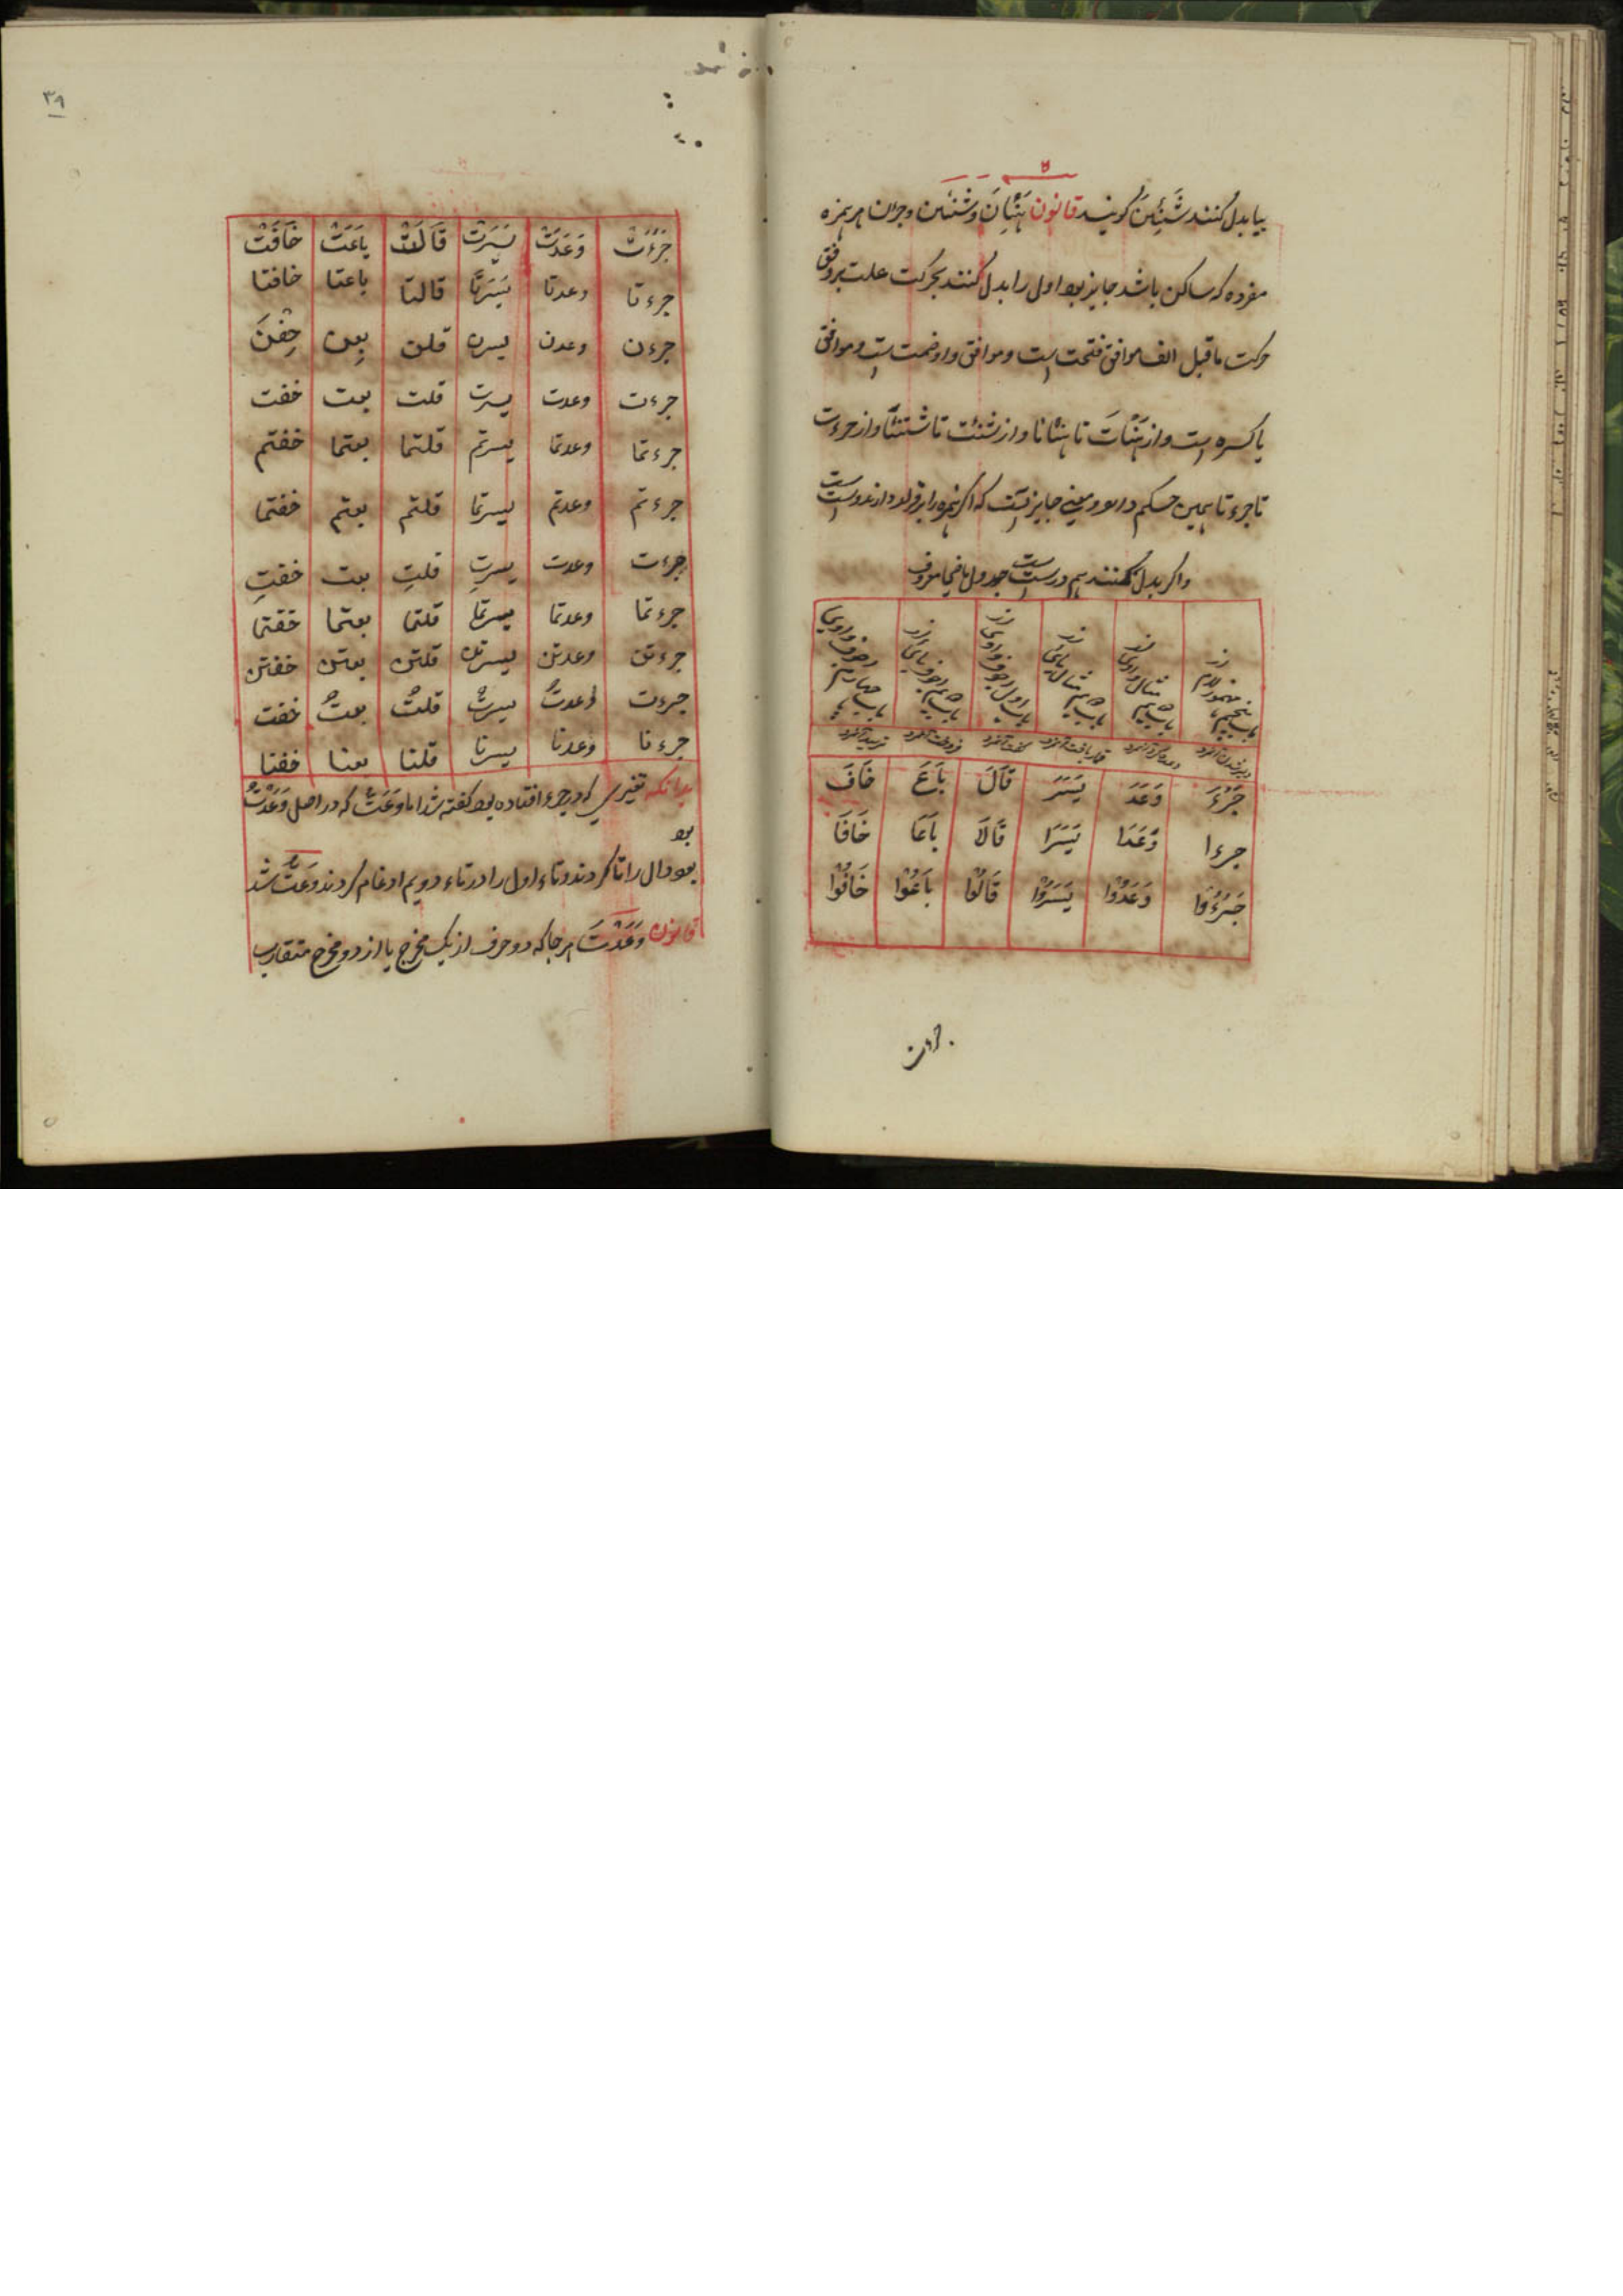 بیا بدل کنند شَنِئِینَ گویند قانون هَنْئانَ و شنئین و جرءن هر همزه
مفرده که ساکن باشد جایز بود اول را بدل کنند بحرکت علت بروفق
حرکت ماقبل الف موافق فتحت است و موافق واو ضمت است و موافق
یا کسره است و از هَنْئاتَ تا هنئانا و از شنئت تا شنئنا و از جرءت
تا جرءنا همین حکم دارد و معنی جایز آنست که اگر همزه را برقرار دارند درست است
و اگر بدل کنند هم درست است جدول ماضی معروف
باب پنجم مهموز لام از
باب مثال واوی از
باب مثال یائی از
باب اول اجوف واوی از
باب اجوف یائی از
باب چهارم اجوف واوی
جَرُءَ وَعَدَ یَسَرَ قَالَ بَاعَ خَافَ
جرءا وَعَدَا یَسَرَا قَالَا بَاعَا خَافَا
جَرُءُوْا وَعَدُوْا یَسَرُوْا قَالُوْا بَاعُوْا خَافُوْا
جرءت
٣٩
جَرُءَتْ وَعَدَتْ یَسَرَتْ قَالَتْ بَاعَتْ خَافَتْ
جرءتا وعدتا یَسَرَتَا قالتا باعتا خافتا
جرءن وعدن یسرن قلن بِعن خِفْنَ
جرءت وعدت یسرت قلت بعت خفت
جرءتما وعدتما یسرتم قلتما بعتما خفتم
جرءتم وعدتم یسرتما قلتم بعتم خفتما
جرءت وعدت یسرتِ قلتِ بعت خفتِ
جرءتما وعدتما یسرتما قلتما بعتما خفتما
جرءتن وعدتن یسرتن قلتن بعتن خفتن
جرءت وعدتُ یسرتُ قلتُ بعتُ خفت
جرءنا وعدنا یسرنا قلنا بعنا خفنا
بدانکه تغییری که در جرء افتاده بود گفته شد اما وَعَتُّ که در اصل وَعَدْتُ
بود
بود دال را تا کردند و تاء اول را در تاء دویم ادغام کردند وَعَتُّ شد
قانون وَعَدْتَ هر جا که دو حرف از یک مخرج یا از دو مخرج متقارب